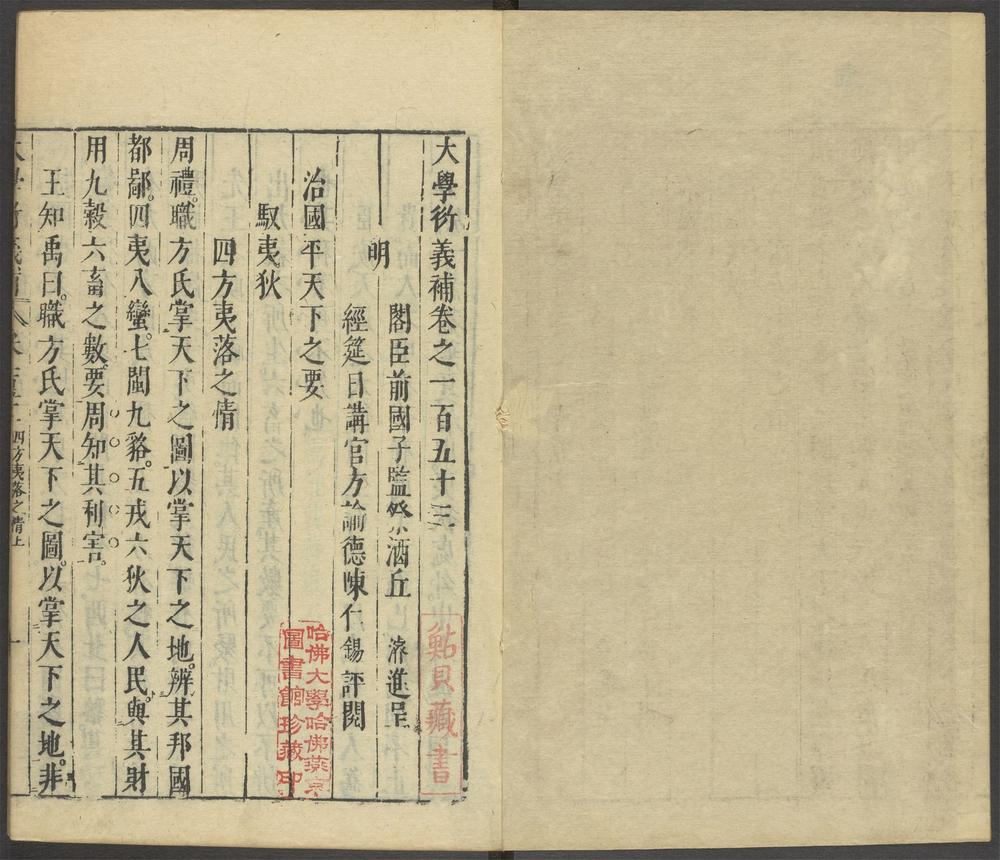 大學衍義補卷之一百五十三
明
閣臣前國子監祭酒丘濬進呈
經筵日講官左諭德陳仁錫評閱
治國平天下之要
馭夷狄
四方夷落之情
周禮職方氏掌天下之圖以掌天下之地。辨其邦國
都鄙。四夷八蠻。七閩九貉。五戎六狄之人民。與其財
用九穀六畜之數。要周知其利害。
王知禹曰。職方氏掌天下之圖。以掌天下之地。非
四方夷落之情上
一
鮎貝藏書
哈佛大學哈佛燕京
圖書館珍藏印